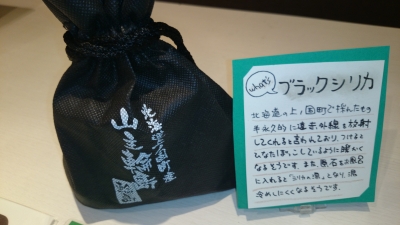 北海道上ノ国町産
what's
ブラックシリカ
北海道の上ノ国町で採れたもの
半永久的に遠赤外線を放射
してくれると言われており、つけると
ひなたぼっこしているように暖かく
なるそうです。また、原石をお風呂
に入れると"シリカの湯"となり、湯
冷めしにくくなるそうです。